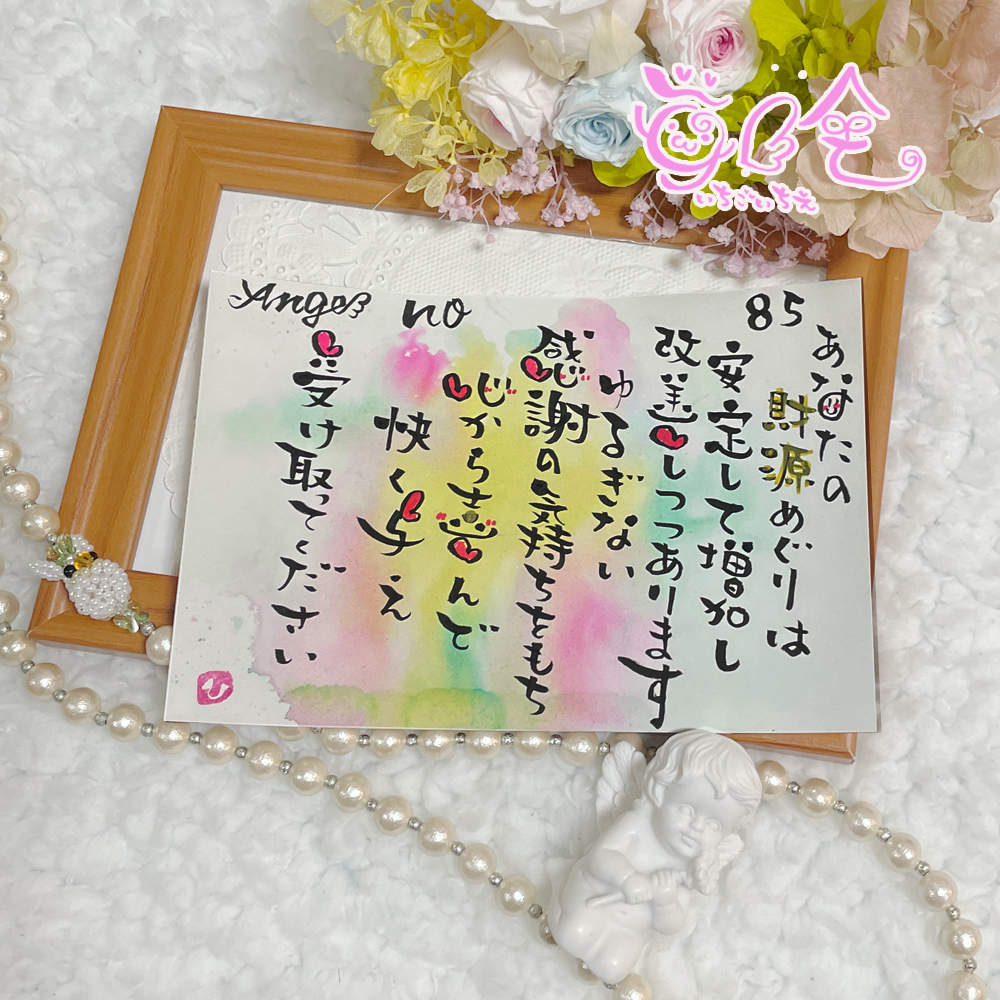 Angel no 85
あなたの
財源めぐりは
安定して増加し
改善しつつあります
ゆるぎない
感謝の気持ちをもち
心から喜んで
快く与え
受け取ってください
ひ
いちごいちえ